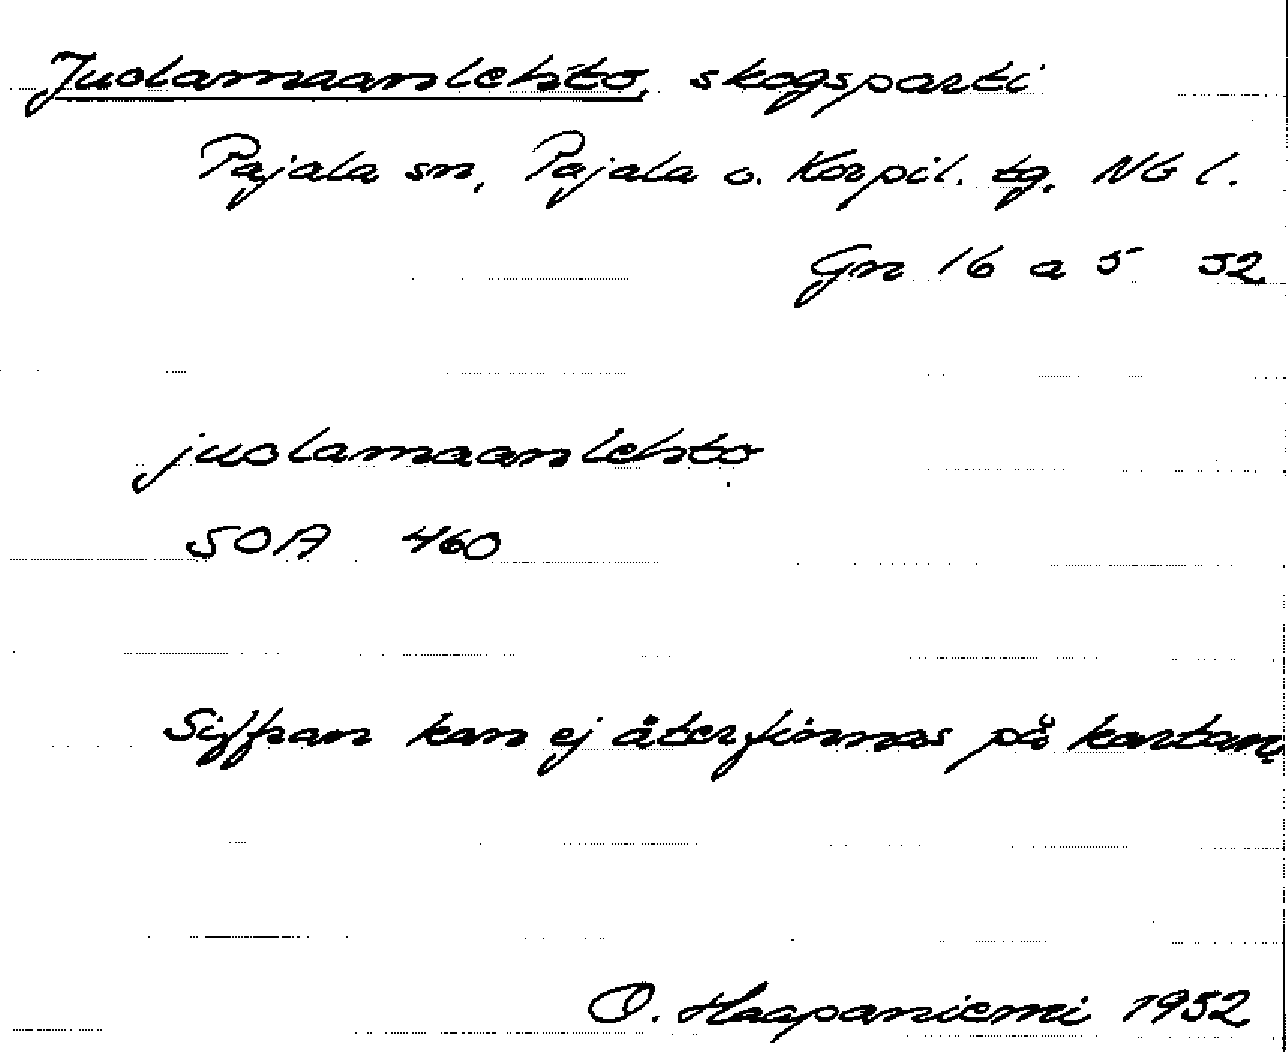 Juolamaanlehto, skogsparti
Pajala sn, Pajala o. Korpil. tg. Nb l.
Gn 16 a 5 52
juolamaanlehto
SOA 460
Siffran kan ej återfinnas på kartan
O. Haapaniemi 1952